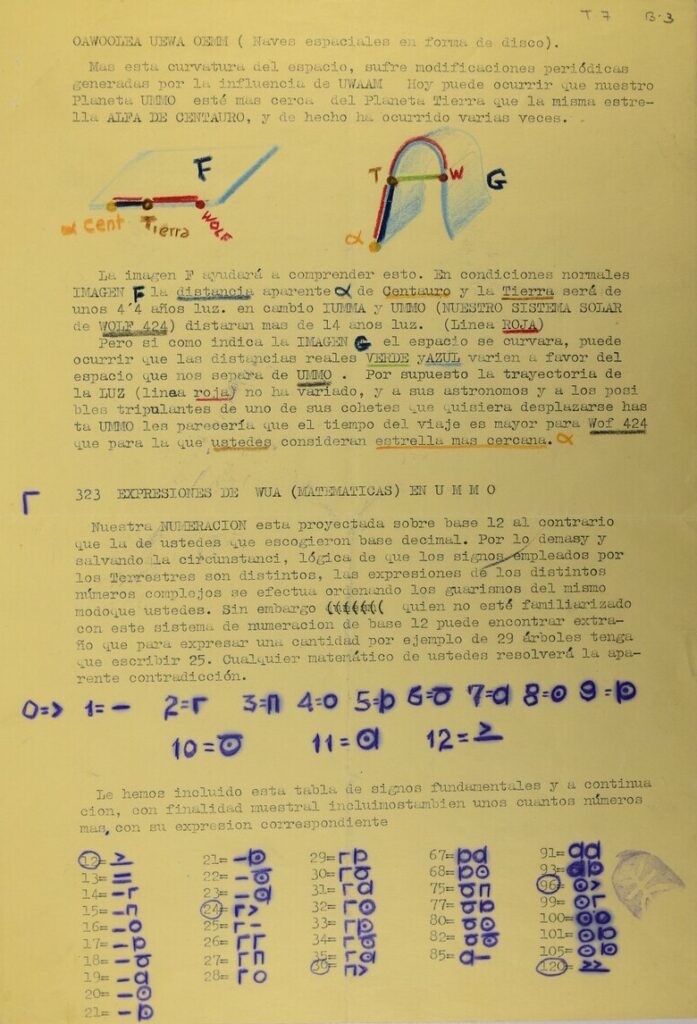 T 7 B-3
OAWOOLEA UEWA OEMM ( Naves espaciales en forma de disco).
Mas esta curvatura del espacio, sufre modificaciones periódicas
generadas por la influencia de UWAAM Hoy puede ocurrir que nuestro
Planeta UMMO esté mas cerca del Planeta Tierra que la misma estre-
lla ALFA DE CENTAURO, y de hecho ha ocurrido varias veces.
F
α cent Tierra WOLF
T W G
α
La imagen F ayudará a comprender esto. En condiciones normales
IMAGEN F la distancia aparente α de Centauro y la Tierra será de
unos 4´4 años luz. en cambio IUMMA y UMMO (NUESTRO SISTEMA SOLAR
de WOLF 424) distaran mas de 14 anos luz. (Linea ROJA)
Pero si como indica la IMAGEN G el espacio se curvara, puede
ocurrir que las distancias reales VERDE yAZUL varien a favor del
espacio que nos separa de UMMO . Por supuesto la trayectoria de
la LUZ (linea roja) no ha variado, y a sus astronomos y a los posi
bles tripulantes de uno de sus cohetes que quisiera desplazarse has
ta UMMO les parecería que el tiempo del viaje es mayor para Wof 424
que para la que ustedes consideran estrella mas cercana. α
323 EXPRESIONES DE WUA (MATEMATICAS) EN U M M O
Nuestra NUMERACION esta proyectada sobre base 12 al contrario
que la de ustedes que escogieron base decimal. Por lo demasy
salvando la circunstanci, lógica de que los signos empleados por
los Terrestres son distintos, las expresiones de los distintos
números complejos se efectua ordenando los guarismos del mismo
modoque ustedes. Sin embargo quien no esté familiarizado
con este sistema de numeracion de base 12 puede encontrar extra-
ño que para expresar una cantidad por ejemplo de 29 árboles tenga
que escribir 25. Cualquier matemático de ustedes resolverá la apa-
rente contradicción.
0=> 1= 2= 3= 4= 5= 6= 7= 8= 9=
10= 11= 12=
Le hemos incluido esta tabla de signos fundamentales y a continua
cion, con finalidad muestral incluimostambien unos cuantos números
mas, con su expresion correspondiente
12=
13=
14=
15=
16=
17=
18=
19=
20=
21=
21=
22=
23=
24=
25=
26=
27=
28=
29=
30=
31=
32=
33=
34=
35=
36=
67=
68=
75=
77=
80=
82=
85=
91=
93=
96=
99=
100=
101=
105=
120=